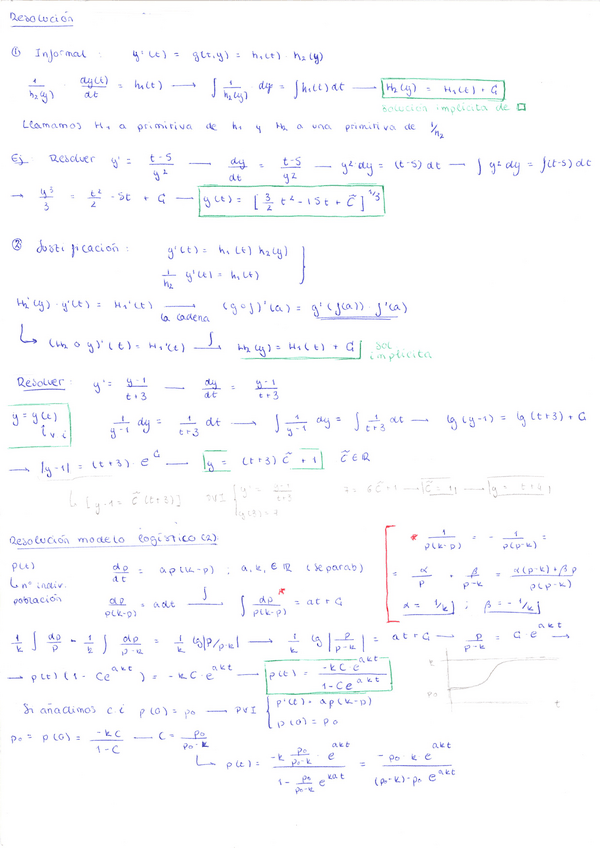 Resolución
① Informal : y'(t) = g(t,y) = h₁(t) · h₂(y)
1/h₂(y) · dy(t)/dt = h₁(t) → ∫ 1/h₂(y) dy = ∫ h₁(t) dt → H₂(y) = H₁(t) + C
solución implícita de □
Llamamos H₁ a primitiva de h₁ y H₂ a una primitiva de 1/h₂
Ej. Resolver y' = t-5/y² — dy/dt = t-5/y² — y² dy = (t-5) dt → ∫ y² dy = ∫(t-5) dt
→ y³/3 = t²/2 - 5t + C — y(t) = [3/2 t² - 15t + C̃]^1/3
② Justificación : y'(t) = h₁(t) h₂(y)
1/h₂ y'(t) = h₁(t)
H₂'(y) · y'(t) = H₁'(t) → la cadena (g∘f)'(a) = g'(f(a)) · f'(a)
↳ (H₂ ∘ y)'(t) = H₁'(t) —∫→ H₂(y) = H₁(t) + C sol implícita
Resolver : y' = y-1/t+3 — dy/dt = y-1/t+3
y = y(t)
v i
1/y-1 dy = 1/t+3 dt → ∫ 1/y-1 dy = ∫ 1/t+3 dt → lg(y-1) = lg(t+3) + C
→ |y-1| = (t+3) e^C — y = (t+3) C̃ + 1 C̃ ∈ ℝ
↳ [y-1 = C̃ (t+3)] PVI { y' = y-1/t+3
y(3) = 7
7 = 6C̃ + 1 → C̃ = 1 → y = t+4
Resolución modelo logístico (2)
p(t)
↳ nº indiv. población
dp/dt = ap(k-p) ; a, k, ∈ ℝ (separab)
dp/p(k-p) = adt —∫→ ∫ dp/p(k-p)* = at + C
* 1/p(k-p) = - 1/p(p-k) =
= α/p + β/p-k = α(p-k) + βp/p(p-k)
α = 1/k ; β = -1/k
1/k ∫ dp/p - 1/k ∫ dp/p-k = 1/k lg|p/p-k| → 1/k lg|p/p-k| = at + C → p/p-k = C e^akt →
→ p(t) (1 - Ce^akt) = -kC·e^akt → p(t) = -kC e^akt/1-Ce^akt
p₀
t
Si añadimos c.i p(0) = p₀ → PVI { p'(t) = ap(k-p)
p(0) = p₀
p₀ = p(0) = -kC/1-C → C = p₀/p₀-k
↳ p(t) = -k p₀/p₀-k · e^akt/1 - p₀/p₀-k e^kat = -p₀ k e^akt/(p₀-k)-p₀ e^akt